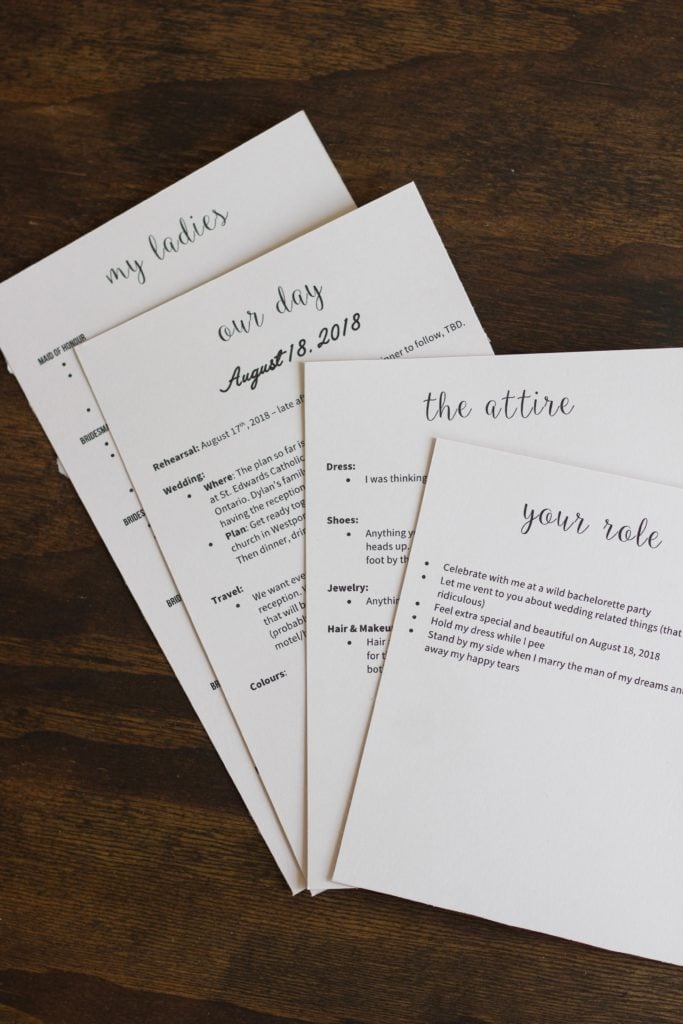 my ladies
MAID OF HONOUR
our day
August 18, 2018
to follow, TBD.
Rehearsal: August 17th, 2018 – late
Wedding:
• Where: The plan so far is
at St. Edwards Catholic
Ontario. Dylan's family
having the reception
• Plan: Get ready
church in
Then dinner,
Travel:
• We want
reception.
that will
Colours:
the attire
Dress:
• I was thinking
Shoes:
• Anything
heads up.
foot by
Jewelry:
•
Hair &
• Hair
for
your role
• Celebrate with me at a wild bachelorette party
• Let me vent to you about wedding related things (that
ridiculous)
• Feel extra special and beautiful on August 18, 2018
• Hold my dress while I pee
• Stand by my side when I marry the man of my dreams
away my happy tears